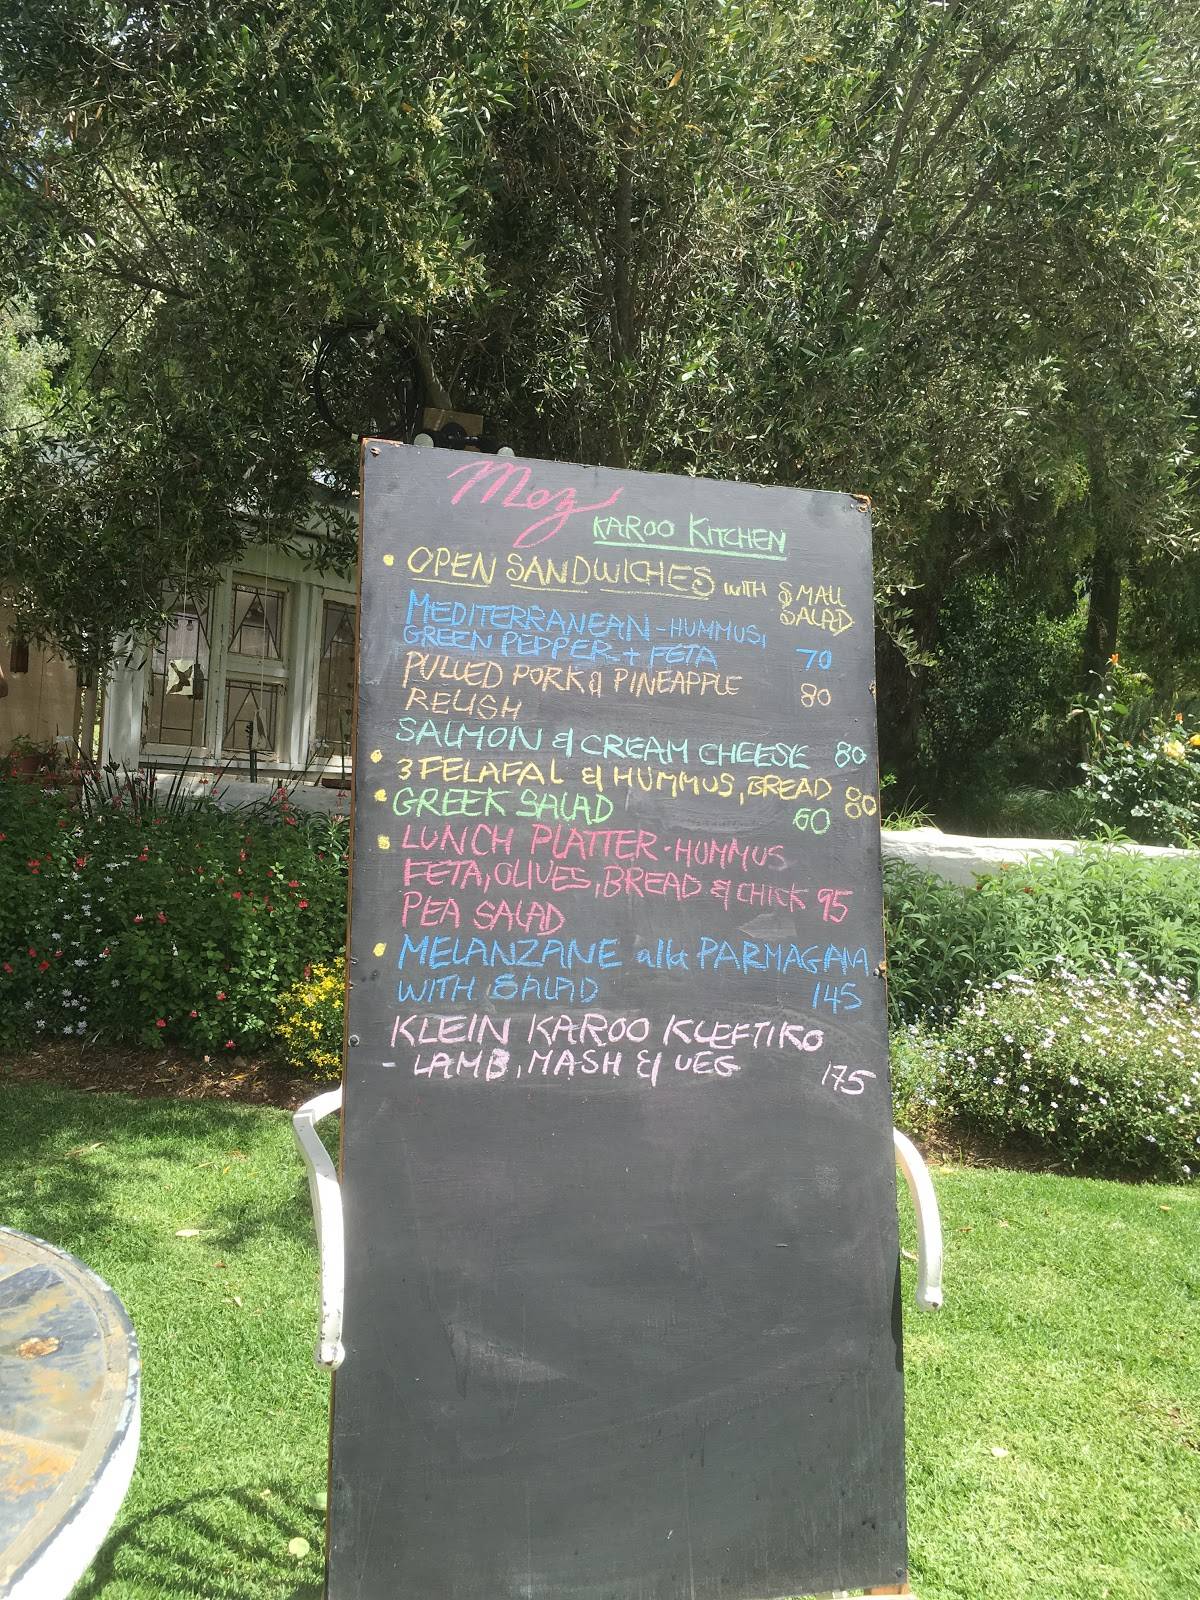 Moz
KAROO KITCHEN
• OPEN SANDWICHES WITH SMALL
SALAD
MEDITERRANEAN - HUMMUS,
GREEN PEPPER + FETA 70
PULLED PORK & PINEAPPLE
RELISH 80
SALMON & CREAM CHEESE 80
• 3 FELAFAL & HUMMUS, BREAD 80
• GREEK SALAD 60
• LUNCH PLATTER - HUMMUS
FETA, OLIVES, BREAD & CHICK 95
PEA SALAD
• MELANZANE alla PARMAGANA
WITH SALAD 145
KLEIN KAROO KLEFTIKO
- LAMB, MASH & VEG 175